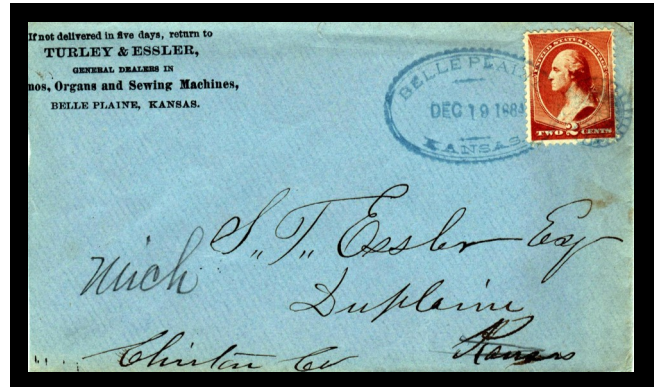 If not delivered in five days, return to
TURLEY & ESSLER,
GENERAL DEALERS IN
nos, Organs and Sewing Machines,
BELLE PLAINE, KANSAS.
BELLE PLAINE
DEC 19 1884
KANSAS
UNITED STATES POSTAGE
TWO 2 CENTS
S. T. Essler Esq
Mich
Duplain
Clinton Co Kansas